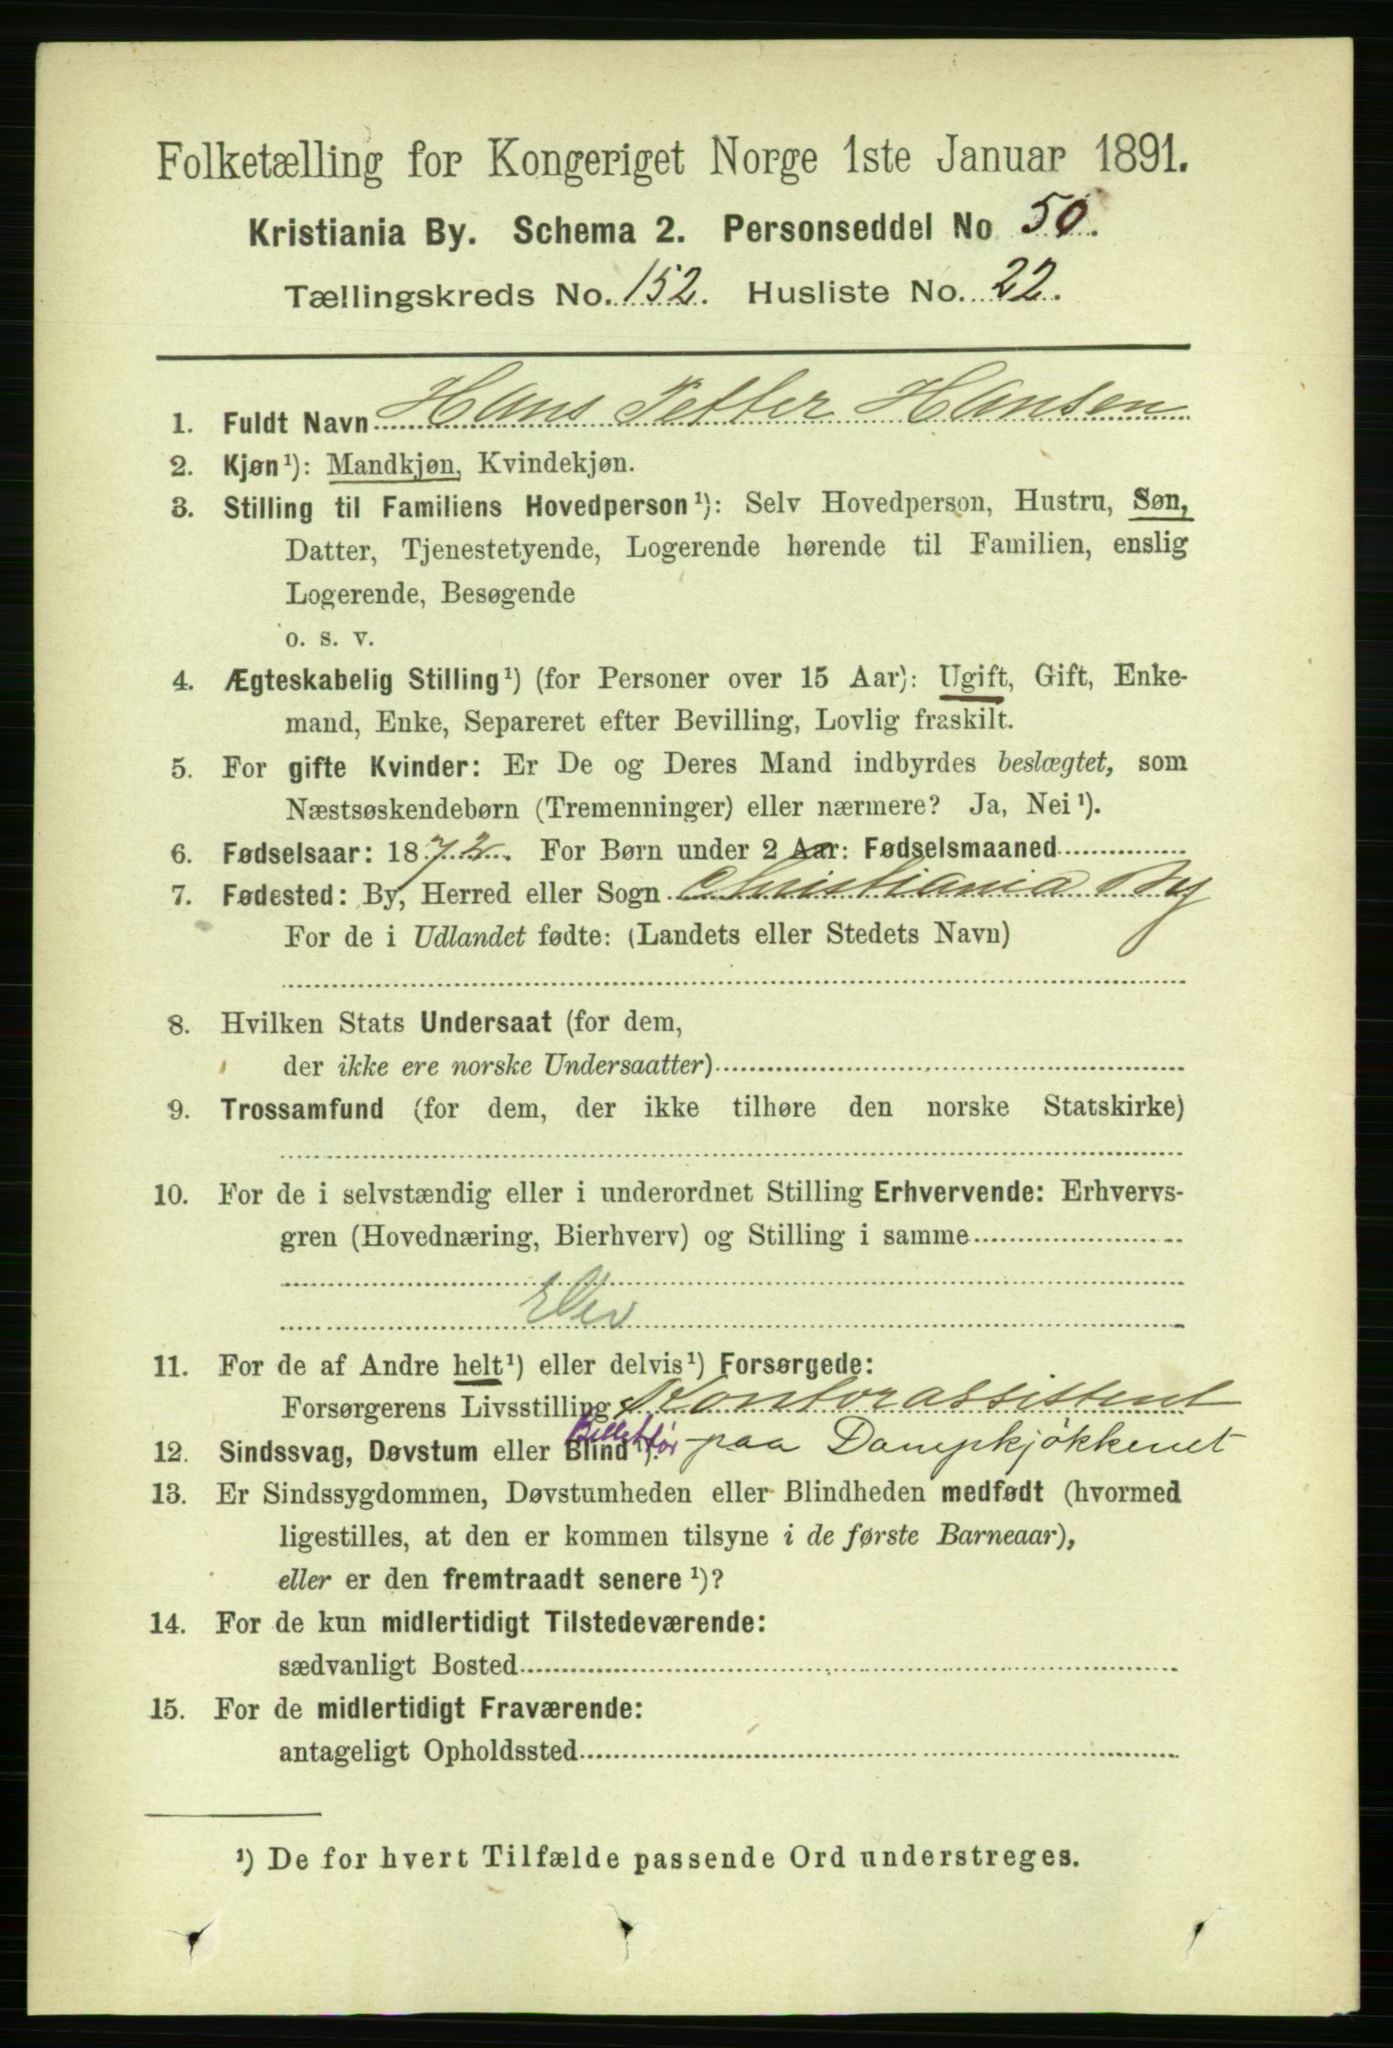 Folketælling for Kongeriget Norge 1ste Januar 1891.
Kristiania By. Schema 2. Personseddel No 50.
Tællingskreds No. 152. Husliste No. 22.
1. Fuldt Navn Hans Petter Hansen
2. Kjøn¹): Mandkjøn, Kvindekjøn.
3. Stilling til Familiens Hovedperson¹): Selv Hovedperson, Hustru, Søn,
Datter, Tjenestetyende, Logerende hørende til Familien, enslig
Logerende, Besøgende
o. s. v.
4. Ægteskabelig Stilling¹) (for Personer over 15 Aar): Ugift, Gift, Enke-
mand, Enke, Separeret efter Bevilling, Lovlig fraskilt.
5. For gifte Kvinder: Er De og Deres Mand indbyrdes beslægtet, som
Næstsøskendebørn (Tremenninger) eller nærmere? Ja, Nei¹).
6. Fødselsaar: 1872. For Børn under 2 Aar: Fødselsmaaned
7. Fødested: By, Herred eller Sogn Christiania By
For de i Udlandet fødte: (Landets eller Stedets Navn)
8. Hvilken Stats Undersaat (for dem,
der ikke ere norske Undersaatter)
9. Trossamfund (for dem, der ikke tilhøre den norske Statskirke)
10. For de i selvstændig eller i underordnet Stilling Erhvervende: Erhvervs-
gren (Hovednæring, Bierhverv) og Stilling i samme
Elev
11. For de af Andre helt¹) eller delvis¹) Forsørgede:
Forsørgerens Livsstilling Kontorassistent
12. Sindssvag, Døvstum eller Blind¹). Billetør paa Dampkjøkkenet
13. Er Sindssygdommen, Døvstumheden eller Blindheden medfødt (hvormed
ligestilles, at den er kommen tilsyne i de første Barneaar),
eller er den fremtraadt senere¹)?
14. For de kun midlertidigt Tilstedeværende:
sædvanligt Bosted
15. For de midlertidigt Fraværende:
antageligt Opholdssted
¹) De for hvert Tilfælde passende Ord understreges.